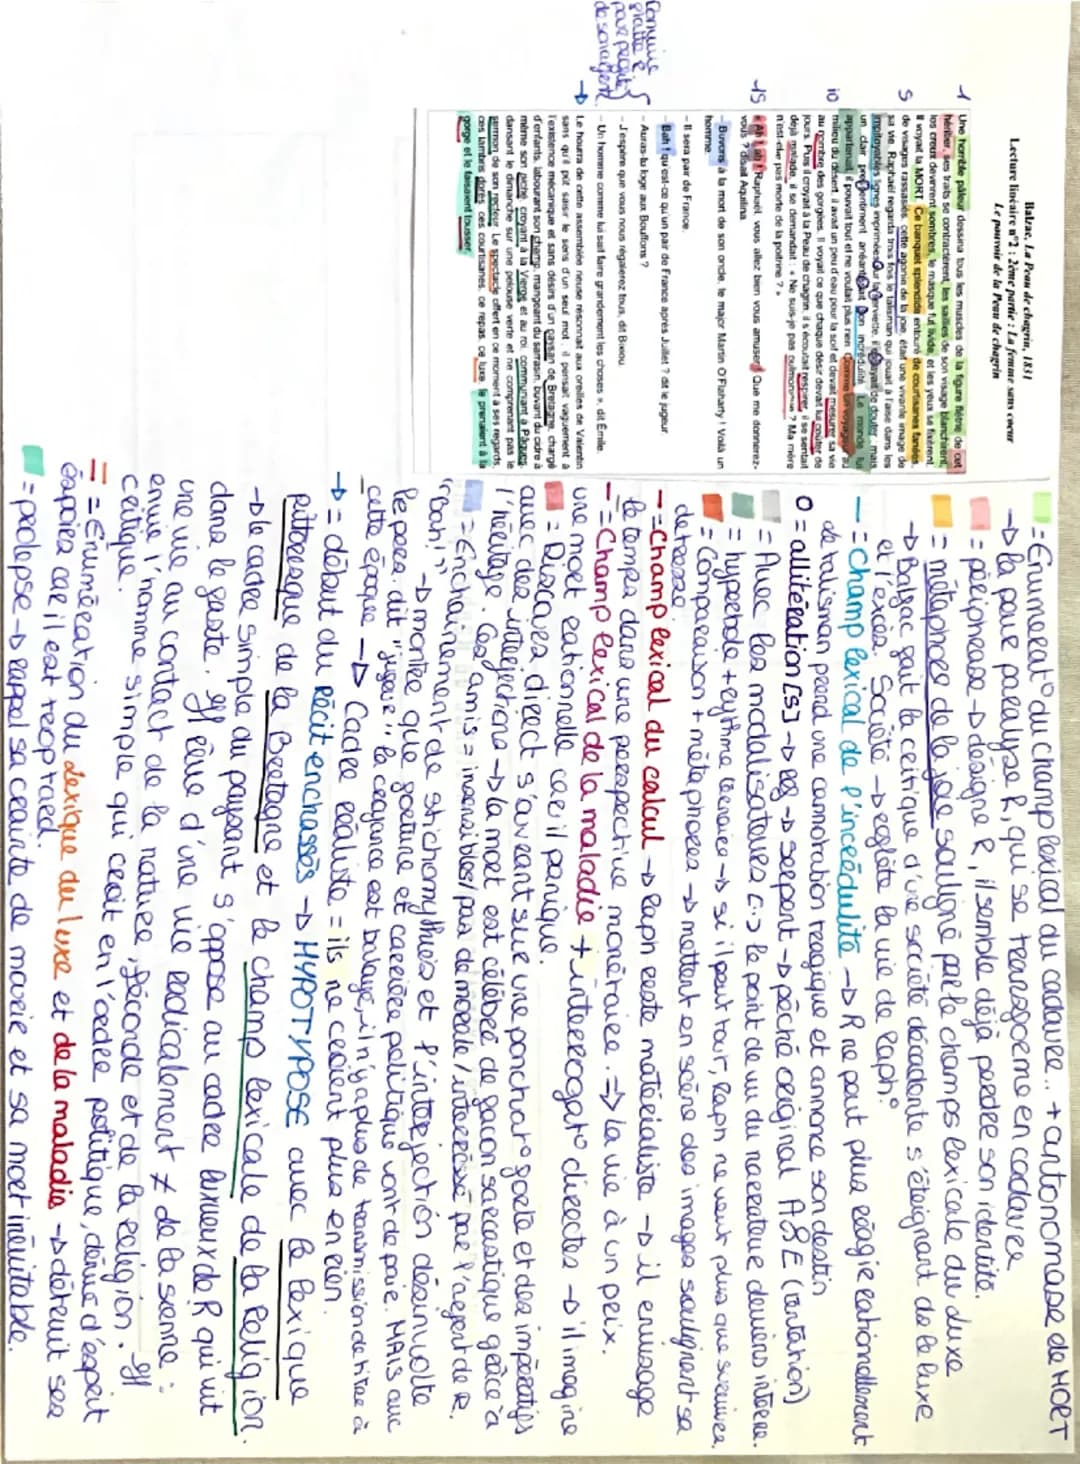 Balzac, La Peau de chagrin, 1831
Lecture linéaire n°2 : 2ème partie : La femme sans coeur
Le pouvoir de la Peau de chagrin
1 Une horrible pâleur dessina tous les muscles de la figure flétrie de cet
héritier, ses traits se contractèrent, les saillies de son visage blanchirent,
les creux devinrent sombres, le masque fut livide, et les yeux se fixèrent.
Il voyait la MORT. Ce banquet splendide entouré de courtisanes fanées,
5 de visages rassasiés, cette agonie de la joie, était une vivante image de
sa vie. Raphaël regarda trois fois le talisman qui jouait à l'aise dans les
impitoyables lignes imprimées sur la serviette, il essayait de douter, mais
un clair pressentiment anéantissait son incrédulité. Le monde lui
appartenait, il pouvait tout et ne voulait plus rien. Comme un voyageur au
10 milieu du désert, il avait un peu d'eau pour la soif et devait mesurer sa vie
au nombre des gorgées. Il voyait ce que chaque désir devait lui coûter de
jours. Puis il croyait à la Peau de chagrin, il s'écoutait respirer, il se sentait
déjà malade, il se demandait : « Ne suis-je pas pulmonique ? Ma mère
n'est-elle pas morte de la poitrine ? »
15 « Ah ! ah ! Raphaël, vous allez bien vous amuser ! Que me donnerez-
vous ? disait Aquilina.
– Buvons à la mort de son oncle, le major Martin O'Flaharty ! Voilà un
homme.
– Il sera pair de France.
– Bah ! qu'est-ce qu'un pair de France après Juillet ? dit le jugeur.
– Auras-tu loge aux Bouffons ?
– J'espère que vous nous régalerez tous, dit Bixiou.
– Un homme comme lui sait faire grandement les choses », dit Émile.
→ Le hourra de cette assemblée rieuse résonnait aux oreilles de Valentin
sans qu'il pût saisir le sens d'un seul mot ; il pensait vaguement à
l'existence mécanique et sans désirs d'un paysan de Bretagne, chargé
d'enfants, labourant son champ, mangeant du sarrasin, buvant du cidre à
même son piché, croyant à la Vierge et au roi, communiant à Pâques,
dansant le dimanche sur une pelouse verte et ne comprenant pas le
sermon de son recteur. Le spectacle offert en ce moment à ses regards,
ces lambris dorés, ces courtisanes, ce repas, ce luxe, le prenaient à la
gorge et le faisaient tousser.
par people
de son argent
= Enumérat° du champ lexical du cadavre.. + antonomase de MORT
→ la peur paralyse R, qui se transforme en cadavre
= périphrase → désigne R, il semble déjà perdre son identité.
= métaphore de la joie souligné par le champs lexicale du luxe
→ Balzac fait la critique d'une société décadente s'éteignant de le luxe
et l'excès. Société → reflète la vie de Raph.
— = champ lexical de l'incrédulité → R ne peut plus réagir rationnellement
de talisman prend une connotation tragique et annonce son destin
O = allitération [s] → reg → serpent → péché original A&E (tentation)
= Avec les modalisateurs [..] le point de vu du narrateur devient interne.
= hyperbole + rythme ternaire → si il peut tout, Raph ne veut plus que survivre.
= Comparaison + métaphores → mettent en scène des images soulignent sa
détresse
— = Champ lexical du calcul → Raph reste matérialiste → il envisage
le temps dans une perspective monétaire. ⇒ la vie à un prix.
— = Champ lexical de la maladie + interrogat° directes → il imagine
une mort rationnelle car il panique.
= Discours direct s'avérant sur une ponctuat° forte et des impératifs
avec des interjections → la mort est célébré de façon sarcastique grâce à
l'héritage. Ces amis = insensibles/pas de morale/intéréssé par l'argent de R.
= Enchaînement de stichomythies et l'interjection désinvolte
"bah!" → montre que fortune et carrière politique vont de paire. MAIS avec
le perso. dit "jugeur" la croyance est balayé, il n'y a plus de transmission de titre à
cette époque → Cadre réaliste = ils ne croient plus en rien.
→ = début du récit enchassés → HYPOTYPOSE avec le lexique
pittoresque de la Bretagne et le champ lexicale de la religion.
→ le cadre simple du paysant s'oppose au cadre luxueux de R qui vit
dans le faste. Il rêve d'une vie radicalement ≠ de la sienne :
une vie au contact de la nature, féconde et de la religion. Il
envie l'homme simple qui croit en l'ordre politique, dénué d'esprit
critique.
= = Enumération du lexique du luxe et de la maladie → détruit ses
espoirs car il est trop tard
= prolepse → rappel sa crainte de mourir et sa mort inévitable.